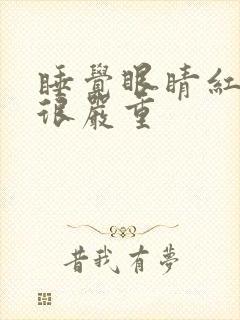 睡覺眼睛紅
很嚴重
昔我有夢